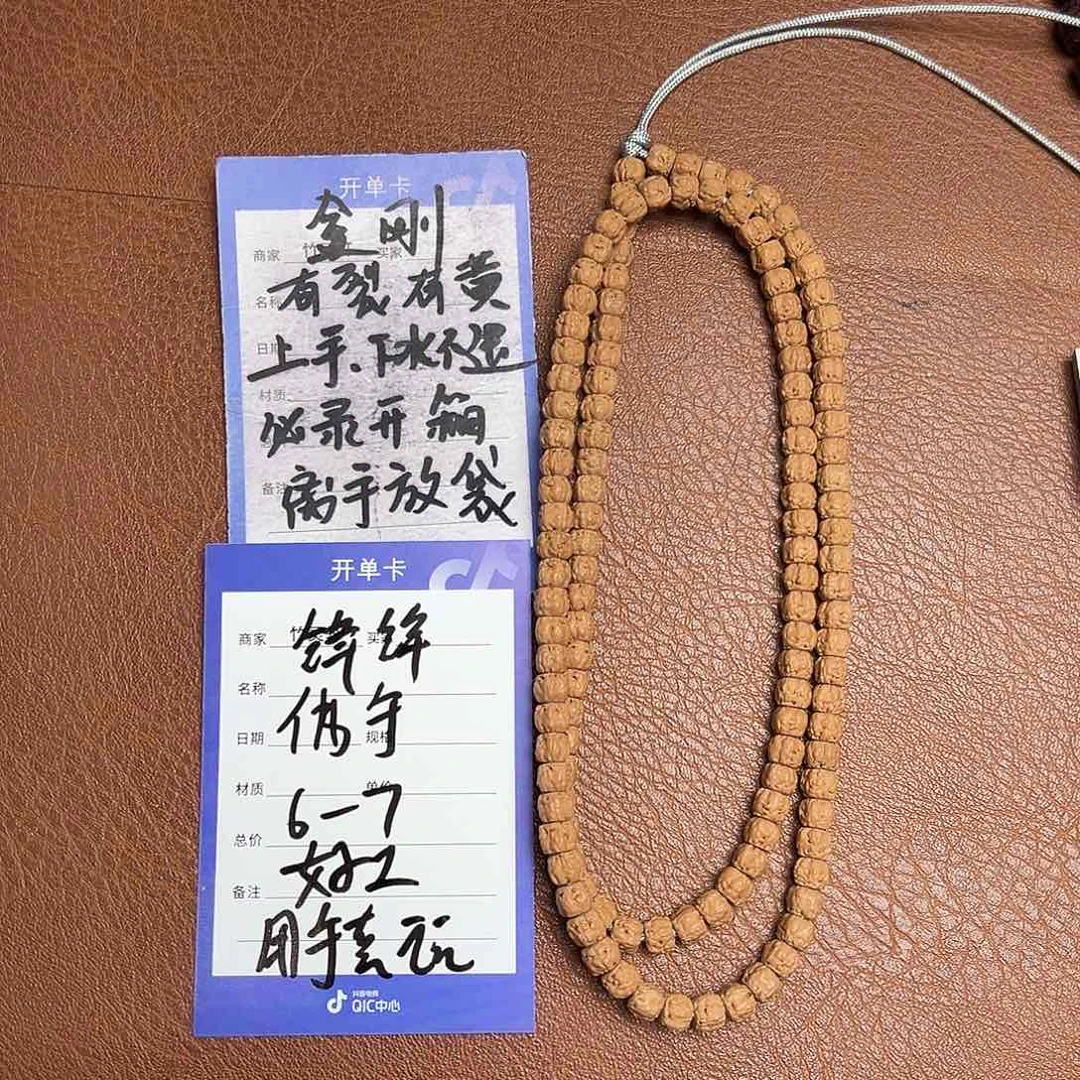 开单卡
金刚
商家 买家
有裂有黄
名称
上手.下水不退
日期
材质
必录开箱
备注
离手放袋
开单卡
商家 竹 买家
名称
日期 规格
材质 单价
6-7
总价
好工
备注
抖音电商
QIC中心